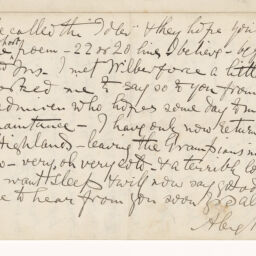 be called the "Idler" & they hope you
short
poem - 22 or 20 lines I believe - by
Ins. I met Wilberforce a little
asked me to - say so to you from
admirer who hopes some day to m
aintance - I have only now return
Highlands - leaving the Grampians in
w - very oh very cold - & a terrible lo
want sleep & will now say good
e to hear from you soon